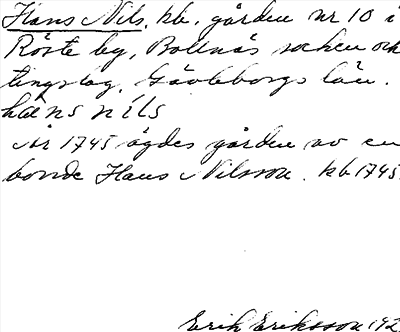 Hans Nils, kb. gården nr 10 i
Röste by, Bollnäs socken och
tingslag, Gävleborgs län.
hans nils
År 1745 ägdes gården av en
bonde Hans Nilsson. kb 1745
Erik Eriksson 192